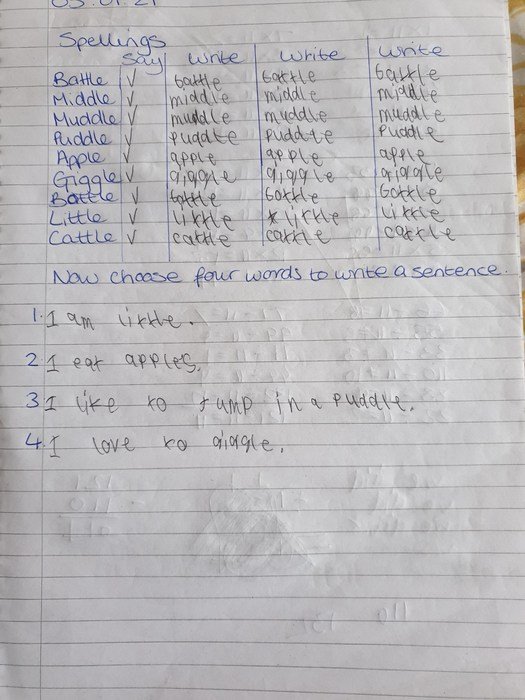 05.01.21
Spellings
Say Write Write Write
Battle ✓ battle battle battle
Middle ✓ middle middle middle
Muddle ✓ muddle muddle muddle
Puddle ✓ puddle puddle puddle
Apple ✓ apple apple apple
Giggle ✓ giggle giggle giggle
Bottle ✓ bottle bottle bottle
Little ✓ little * little little
Cattle ✓ cattle cattle cattle
Now choose four words to write a sentence.
1. I am little.
2 I eat apples.
3 I like to jump in a puddle.
4. I love to giggle.